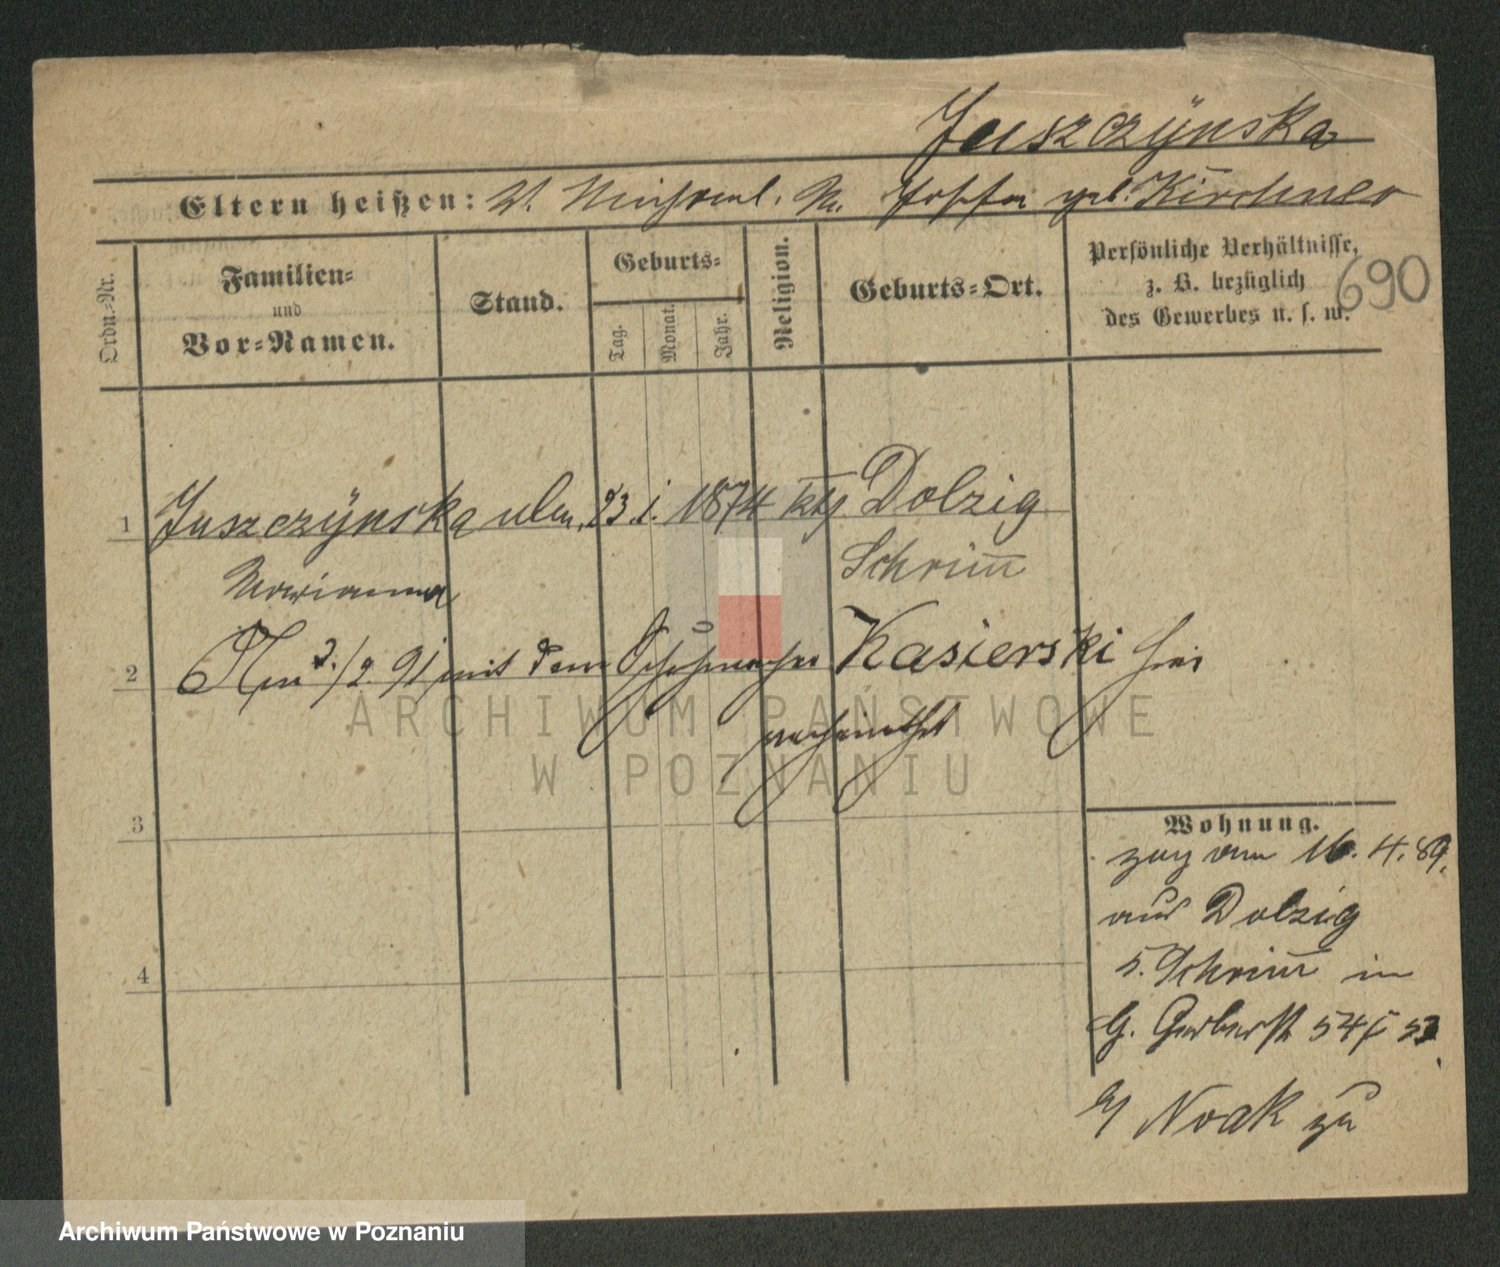 Juszczÿnska
Eltern heißen: V. Michael. M. geb. Kirchner
Ordn.-Nr.
Familien-
und
Vor-Namen.
Stand.
Geburts-
Tag.
Monat.
Jahr.
Religion.
Geburts-Ort.
Persönliche Verhältnisse,
z. B. bezüglich
des Gewerbes u. s. w.
690
1 Juszczÿnska 23. 1. 1874 kth Dolzig
Marianna Schrim̅
2 Am 3./2. 91 mit dem Schuhmacher Kasierski hier
verheirathet
3
4
Wohnung.
zug am 16. 4. 89.
aus Dolzig
Schrim̅ in
G. Gerberst 54
Noak zu
ARCHIWUM PAŃSTWOWE
W POZNANIU
Archiwum Państwowe w Poznaniu